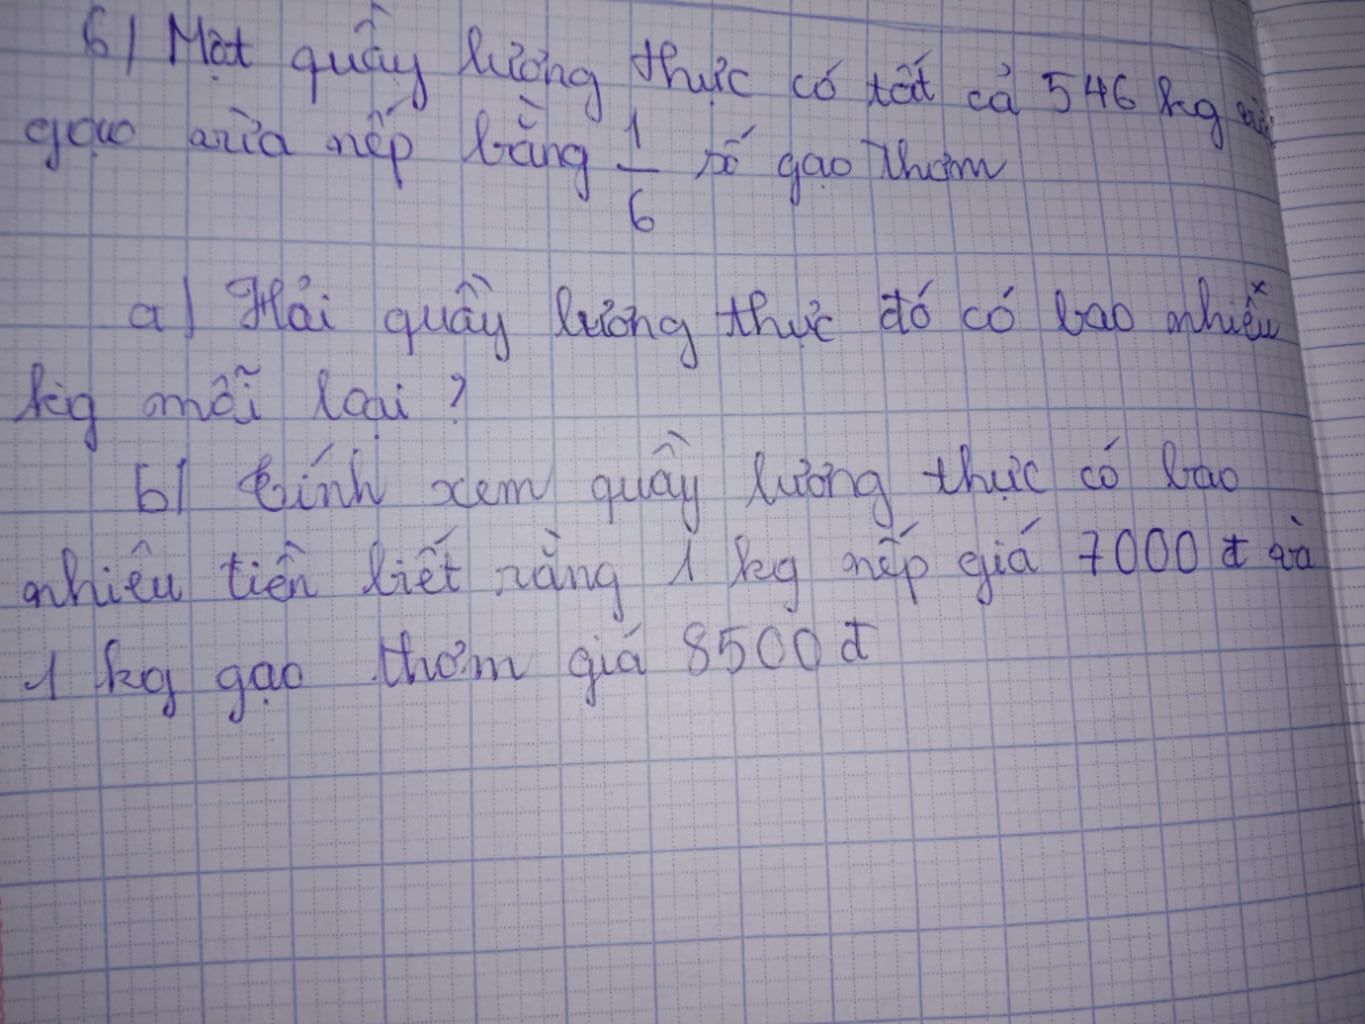 6) Một quầy lương thực có tất cả 546 kg
gạo vừa nếp bằng 1/6 số gạo thơm
a) Hỏi quầy lương thực đó có bao nhiêu
kg mỗi loại ?
b) tính xem quầy lương thực có bao
nhiêu tiền biết rằng 1 kg nếp giá 7000 đ và
1 kg gạo thơm giá 8500 đ